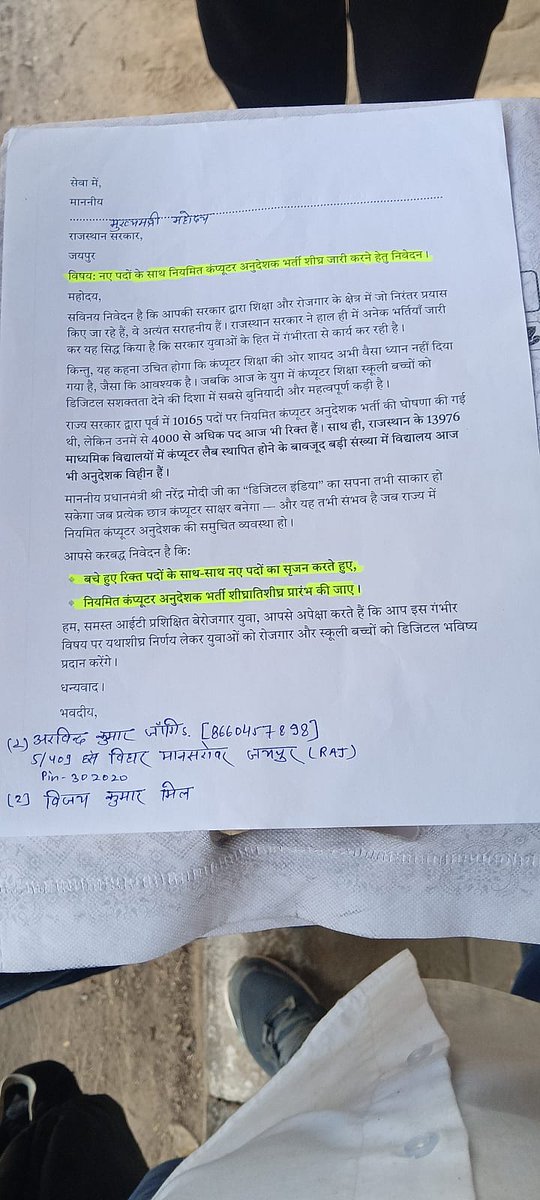 सेवा में,
माननीय ........................................................................
.................... मुख्यमंत्री महोदय
राजस्थान सरकार,
जयपुर
विषय: नए पदों के साथ नियमित कंप्यूटर अनुदेशक भर्ती शीघ्र जारी करने हेतु निवेदन।
महोदय,
सविनय निवेदन है कि आपकी सरकार द्वारा शिक्षा और रोजगार के क्षेत्र में जो निरंतर प्रयास
किए जा रहे हैं, वे अत्यंत सराहनीय हैं। राजस्थान सरकार ने हाल ही में अनेक भर्तियाँ जारी
कर यह सिद्ध किया है कि सरकार युवाओं के हित में गंभीरता से कार्य कर रही है।
किन्तु, यह कहना उचित होगा कि कंप्यूटर शिक्षा की ओर शायद अभी वैसा ध्यान नहीं दिया
गया है, जैसा कि आवश्यक है। जबकि आज के युग में कंप्यूटर शिक्षा स्कूली बच्चों को
डिजिटल सशक्तता देने की दिशा में सबसे बुनियादी और महत्वपूर्ण कड़ी है।
राज्य सरकार द्वारा पूर्व में 10165 पदों पर नियमित कंप्यूटर अनुदेशक भर्ती की घोषणा की गई
थी, लेकिन उनमें से 4000 से अधिक पद आज भी रिक्त हैं। साथ ही, राजस्थान के 13976
माध्यमिक विद्यालयों में कंप्यूटर लैब स्थापित होने के बावजूद बड़ी संख्या में विद्यालय आज
भी अनुदेशक विहीन हैं।
माननीय प्रधानमंत्री श्री नरेंद्र मोदी जी का "डिजिटल इंडिया" का सपना तभी साकार हो
सकेगा जब प्रत्येक छात्र कंप्यूटर साक्षर बनेगा — और यह तभी संभव है जब राज्य में
नियमित कंप्यूटर अनुदेशक की समुचित व्यवस्था हो।
आपसे करबद्ध निवेदन है कि:
बचे हुए रिक्त पदों के साथ-साथ नए पदों का सृजन करते हुए,
नियमित कंप्यूटर अनुदेशक भर्ती शीघ्रातिशीघ्र प्रारंभ की जाए।
हम, समस्त आईटी प्रशिक्षित बेरोजगार युवा, आपसे अपेक्षा करते हैं कि आप इस गंभीर
विषय पर यथाशीघ्र निर्णय लेकर युवाओं को रोजगार और स्कूली बच्चों को डिजिटल भविष्य
प्रदान करेंगे।
धन्यवाद।
भवदीय,
अरविन्द कुमार [8660457898]
5/409 हंस विहार मानसरोवर जयपुर (RAJ)
Pin-302020
(2) विजय कुमार मिल